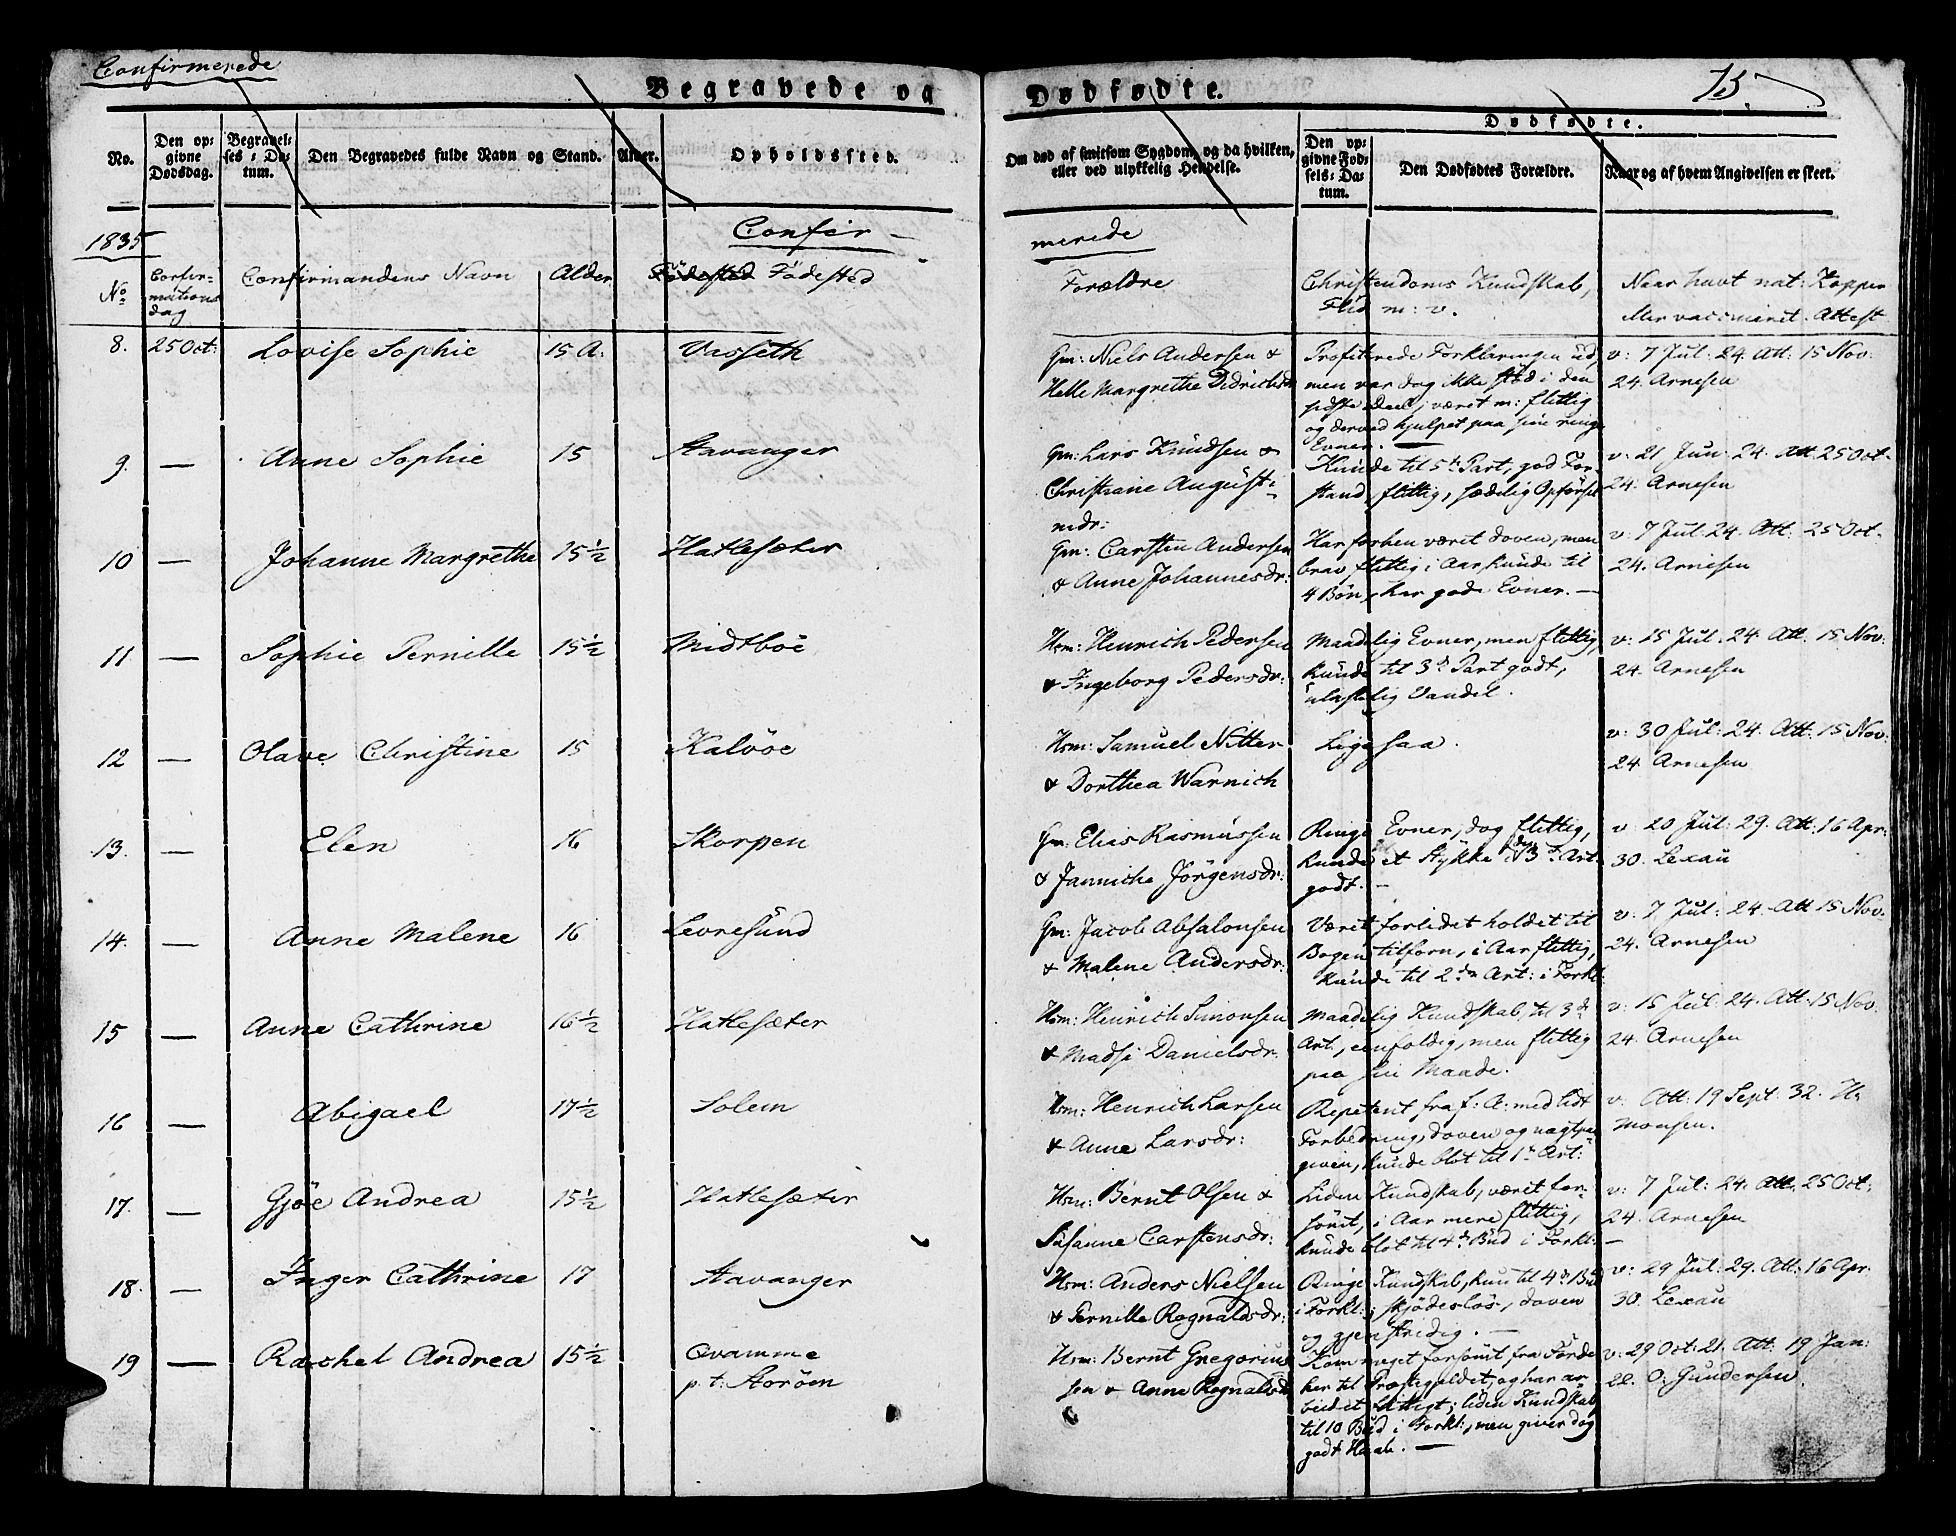 Confirmerede
Begravede og Dødfødte.
75.
No.
Den opgivne Dødsdag.
Begravelses-Datum.
Den Begravedes fulde Navn og Stand.
Alder.
Opholdssted.
Om død af smitsom Sygdom, og da hvilken, eller ved ulykkelig Hendelse.
Dødfødte.
Den opgivne Fødsels-Datum.
Den Dødfødtes Forældre.
Naar og af hvem Angivelsen er skeet.
1835
Confir-
merede
No
Confirmations dag
Confirmandens Navn
Alder
Fødested Födested
Forældre
Christendoms Kundskab,
Flid m: v.
Naar havt nat: Kopper
eller vaccineret. Attest
8. 25 Oct: Lovise Sophie 15 A: Vasseth
Gm: Niels Andersen &
Helle Margrethe Didrichsd:
Profiterede Forklaringen ud,
men var dog ikke stød i den
sidste Deel; været m: flittig
og derved hjulpet paa sine ringe
Evner. —
v: 7 Jul: 24. Att: 15 Nov:
24. Arnesen
9. — Anne Sophie 15 Stavanger
Gm: Lars Knudsen &
Christiane August-
indr:
Kunde til 5te Part, god For-
stand, flittig, sædelig Opførsel
v: 21 Jun: 24. Att: 25 Oct.
24. Arnesen
10 — Johanne Margrethe 15½ Hatlesæter
Gm: Carsten Andersen
& Anne Johannesdr:
Har forhen været doven, men
brav flittig i Aar, kunde til
4 Bön, har gode Evner. —
v: 7 Jul: 24. Att: 25 Oct.
24. Arnesen
11 — Sophie Pernille 15½ Midtböe
Hsm: Henrich Pedersen
& Ingeborg Pedersdr:
Maadelig Evner, men flittig,
kunde til 3d Part godt,
ulastelig Vandel.
v: 15 Jul: 24. Att: 15 Nov:
24. Arnesen
12 — Olave Christine 15 Kalvöe
Hsm: Samuel Nitter
& Dorthea Warnich
Ligesaa.
v: 30 Jul: 24. Att: 15 Nov:
24. Arnesen
13. — Elen 16 Skorpen
Gm: Elias Rasmussen
& Jannicke Jörgensdr:
Ringe Evner, dog flittig,
kunde et Stykke i den 3d Art.
godt. —
v: 20 Jul: 29. Att: 16 Apr:
30. Lexau
14. — Anne Malene 16 Levresund
Gm: Jacob Absalonsen
& Malene Andersdr:
Været forlidet holdet til
Bogen tilforn, i Aar flittig,
kunde til 2den Art: i Forkl:
v: 7 Jul: 24. Att: 15 Nov.
24. Arnesen
15 — Anne Cathrine 16½ Hatlesæter
Hsm: Henrich Simonsen
& Madsi Danielsdr.
Maadelig Kundskab, til 3d
Art, eenfoldig, men flittig
paa sin Maade.
v: 15 Jul: 24. Att: 15 Nov:
24. Arnesen
16 — Abigael 17½ Solem
Hsm: Henrich Larsen
& Anne Larsdr:
Repetent fra f: A: med lidt
Forbedring, doven og
given, kunde blot til 1t Art:
v: Att: 19 Sept: 32. H.
Monsen.
17. — Gjöe Andrea 15½ Hatlesæter
Hsm: Bernt Olsen &
Susanne Carstensdr:
Liden Kundskab, været for-
sömt, i Aar mere flittig,
kunde blot til 4d Bud i Forkl:
v: 7 Jul: 24. Att: 25 Oct:
24. Arnesen
18. — Inger Cathrine 17 Stavanger
Hsm: Anders Nielsen
& Pernille Rognaldsdr:
Ringe Kundskab, kun til 4d Bud
i Forkl:; skjödeslös, doven
og gjenstridig. —
v: 29 Jul: 29. Att: 16 Apr:
30. Lexau
19 — Rachel Andrea 15½ Qvamme
p. t: Storöen
Hsm: Bernt Gregorius-
sen & Anne Rognaldsd:
Kom meget forsömt fra Förde
her til Præstegieldet, og har ar-
beidet flittigt; liden Kundskab
til 10 Bud i Forkl:, men giver dog
godt Haab. —
v: 29 Oct: 21. Att: 19 Jan:
22. O. Gundersen.